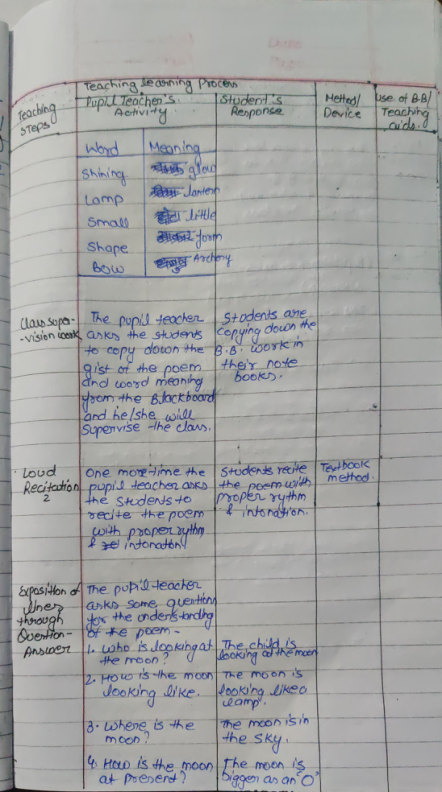 Teaching Learning Process
Teaching Steps
Pupil Teacher's Activity
Student's Response
Method/ Device
Use of B.B/ Teaching aids.
Word Meaning
Shining glow
Lamp lantern
Small little
Shape form
Bow Archery
Class super-
-vision work
The pupil teacher
asks the students
to copy down the
gist of the poem
and word meaning
from the Blackboard
and he/she will
supervise the class.
Students are
copying down the
B.B. work in
their note
books.
Loud
Recitation
2
One more time the
pupil teacher asks
the students to
recite the poem
with proper rythm
& intonation.
Students recite
the poem with
proper rythm
& intonation.
Textbook
method.
Exposition of
lines
through
Question-
Answer
The pupil teacher
asks some questions
for the understanding
of the poem-
1. Who is looking at
the moon?
The child is
looking at the moon
2. How is the moon
looking like.
The moon is
looking like a
lamp.
3. Where is the
moon?
The moon is in
the sky.
4. How is the moon
at present?
The moon is
bigger as an "O"